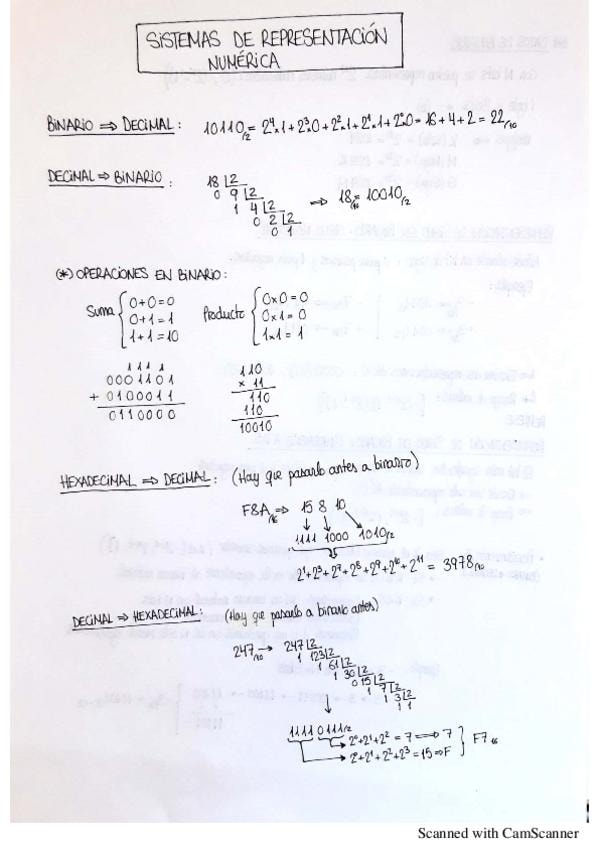 SISTEMAS DE REPRESENTACIÓN
NUMÉRICA
BINARIO ⇒ DECIMAL: 10110/2 = 2⁴·1+2³·0+2²·1+2¹·1+2⁰·0 = 16+4+2 = 22/10
DECIMAL ⇒ BINARIO: 18 |2
0 9 |2
1 4 |2 ⇒ 18/10 = 10010/2
0 2 |2
0 1
(*) OPERACIONES EN BINARIO:
Suma { 0+0=0 Producto { 0x0=0
0+1=1 0x1=0
1+1=10 1x1=1
1111 110
0001101 x 11
+ 0100011 110
0110000 110
10010
HEXADECIMAL ⇒ DECIMAL: (Hay que pasarlo antes a binario)
F8A/16 ⇒ 15 8 10
1111 1000 1010/2
2¹+2³+2⁷+2⁸+2⁹+2¹⁰+2¹¹ = 3978/10
DECIMAL ⇒ HEXADECIMAL: (Hay que pasarlo a binario antes)
247/10 → 247 |2
1 123 |2
1 61 |2
1 30 |2
0 15 |2
1 7 |2
1 3 |2
1 1
11110111/2
2⁰+2¹+2² = 7 ⇒ 7 } F7/16
2⁰+2¹+2²+2³ = 15 ⇒ F
Scanned with CamScanner